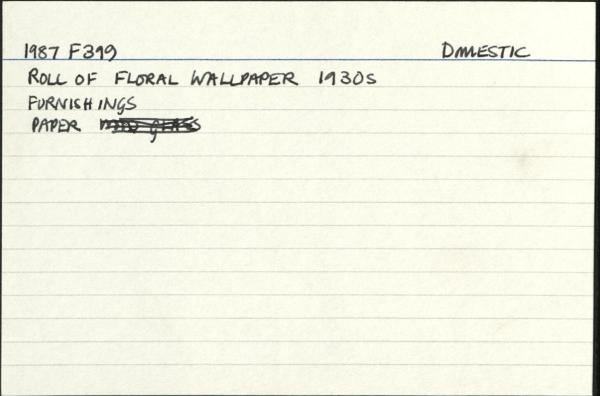 1987 F399 DOMESTIC
ROLL OF FLORAL WALLPAPER 1930S
FURNISHINGS
PAPER